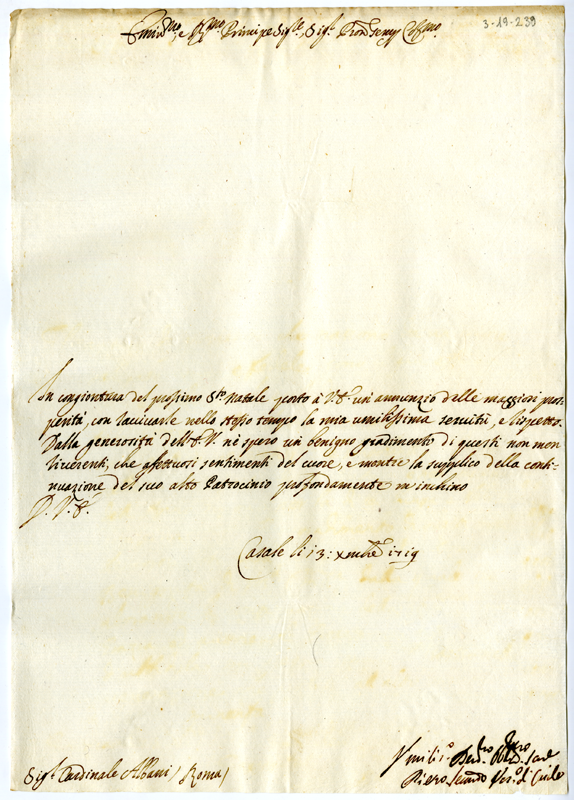 3-19-239
Emin.mo, e R.mo Principe Sig.re, Sig.r Pron
In congiontura del prossimo S.to Natale porto à V.E. un'annunzio delle maggiori pros-
perità, con ravivarle nello stesso tempo la mia umilissima servitù, e rispetto.
Dalla generosità dell'E.V. nè spero un benigno gradimento di questi non men
riverenti, che afettuosi sentimenti del cuore, e mentre la supplico della conti-
nuazione del suo alto Patrocinio profondamente m'inchino
D. V. E.
Casale li 13: Xmbre 1719
Umilis.o
Piero Secondo Ves.o di
Sig.r Cardinale Albani / Roma /